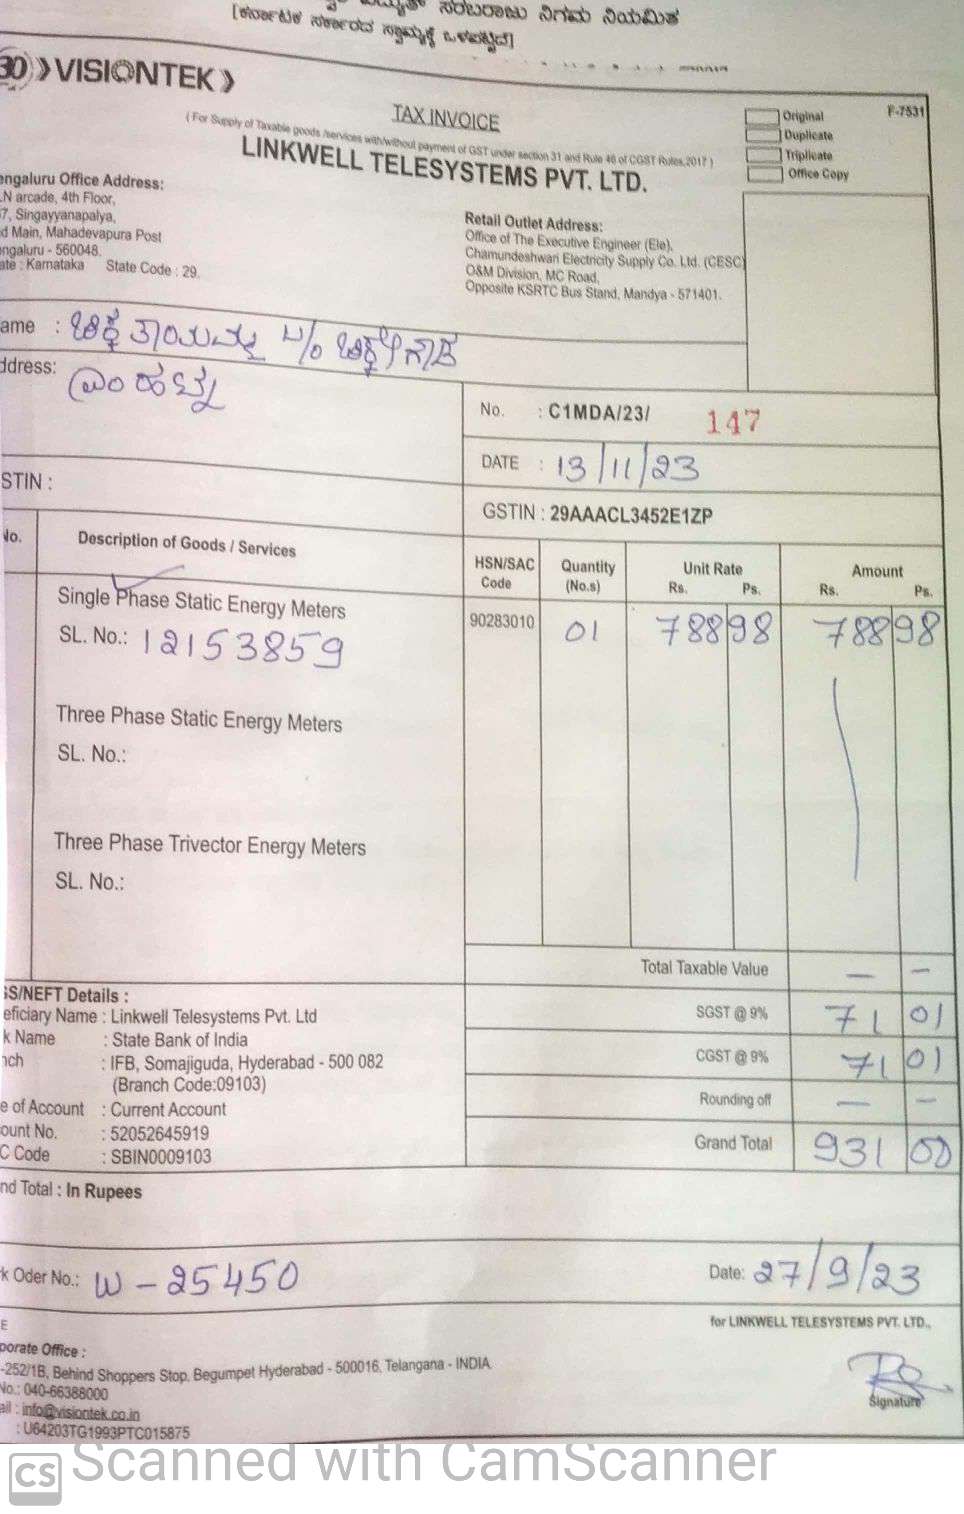 ಸರಬರಾಜು ನಿಗಮ ನಿಯಮಿತ
[ಕರ್ನಾಟಕ ಸರ್ಕಾರದ ಸ್ವಾಮ್ಯಕ್ಕೆ ಒಳಪಟ್ಟಿದೆ]
30 VISIONTEK
TAX INVOICE
(For Supply of Taxable goods /services with/without payment of GST under section 31 and Rule 46 of CGST Rules,2017)
LINKWELL TELESYSTEMS PVT. LTD.
F-7531
Original
Duplicate
Triplicate
Office Copy
engaluru Office Address:
LN arcade, 4th Floor,
7, Singayyanapalya,
d Main, Mahadevapura Post
engaluru - 560048.
ate : Karnataka State Code : 29.
Retail Outlet Address:
Office of The Executive Engineer (Ele),
Chamundeshwari Electricity Supply Co. Ltd. (CESC)
O&M Division, MC Road,
Opposite KSRTC Bus Stand, Mandya - 571401.
ame : ಚಿಕ್ಕತಾಯಮ್ಮ
ddress:
No. : C1MDA/23/ 147
DATE : 13/11/23
STIN :
GSTIN : 29AAACL3452E1ZP
No. Description of Goods / Services HSN/SAC Code Quantity (No.s) Unit Rate Rs. Ps. Amount Rs. Ps.
Single Phase Static Energy Meters 90283010 01 788 98 788 98
SL. No.: 12153859
Three Phase Static Energy Meters
SL. No.:
Three Phase Trivector Energy Meters
SL. No.:
Total Taxable Value — —
SGST @ 9% 71 01
CGST @ 9% 71 01
Rounding off — —
Grand Total 931 00
GS/NEFT Details :
eficiary Name : Linkwell Telesystems Pvt. Ltd
k Name : State Bank of India
nch : IFB, Somajiguda, Hyderabad - 500 082
(Branch Code:09103)
e of Account : Current Account
ount No. : 52052645919
C Code : SBIN0009103
nd Total : In Rupees
k Oder No.: W - 25450
Date: 27/9/23
E
for LINKWELL TELESYSTEMS PVT. LTD.,
porate Office :
-252/1B, Behind Shoppers Stop, Begumpet Hyderabad - 500016, Telangana - INDIA.
No.: 040-66388000
ail : info@visiontek.co.in
: U64203TG1993PTC015875
Signature
CS Scanned with CamScanner